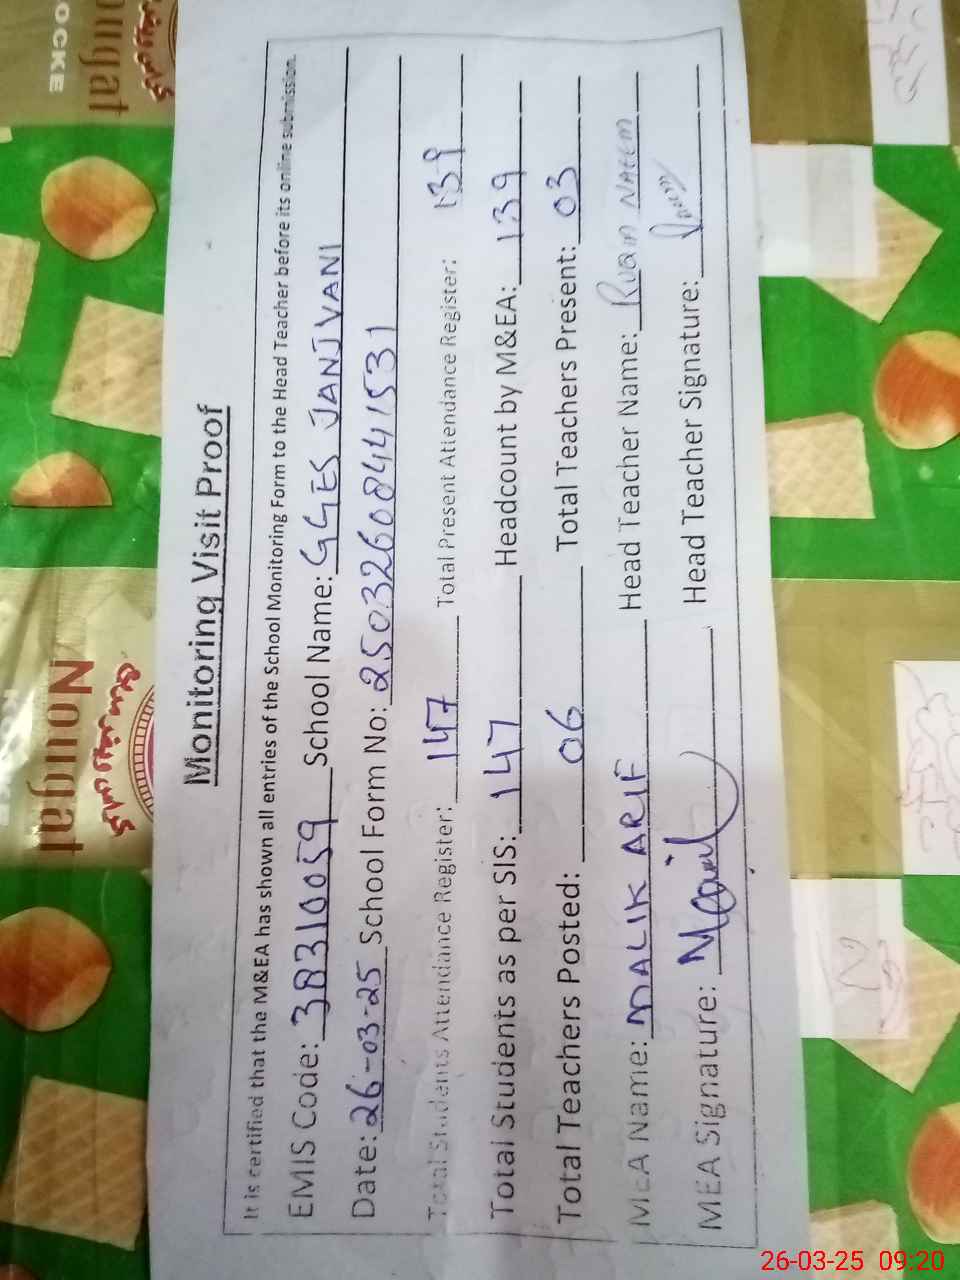 Monitoring Visit Proof
It is certified that the M&EA has shown all entries of the School Monitoring Form to the Head Teacher before its online submission.
EMIS Code: 38310059 School Name: GGES JANJVANI
Date: 26-03-25 School Form No: 25032608441531
Total Students Attendance Register: 147 Total Present Attendance Register: 139
Total Students as per SIS: 147 Headcount by M&EA: 139
Total Teachers Posted: 06 Total Teachers Present: 03
MEA Name: MALIK ARIF Head Teacher Name: NAEEM
MEA Signature: Head Teacher Signature:
Nougat
Nougat
OCKE
26-03-25 09:20